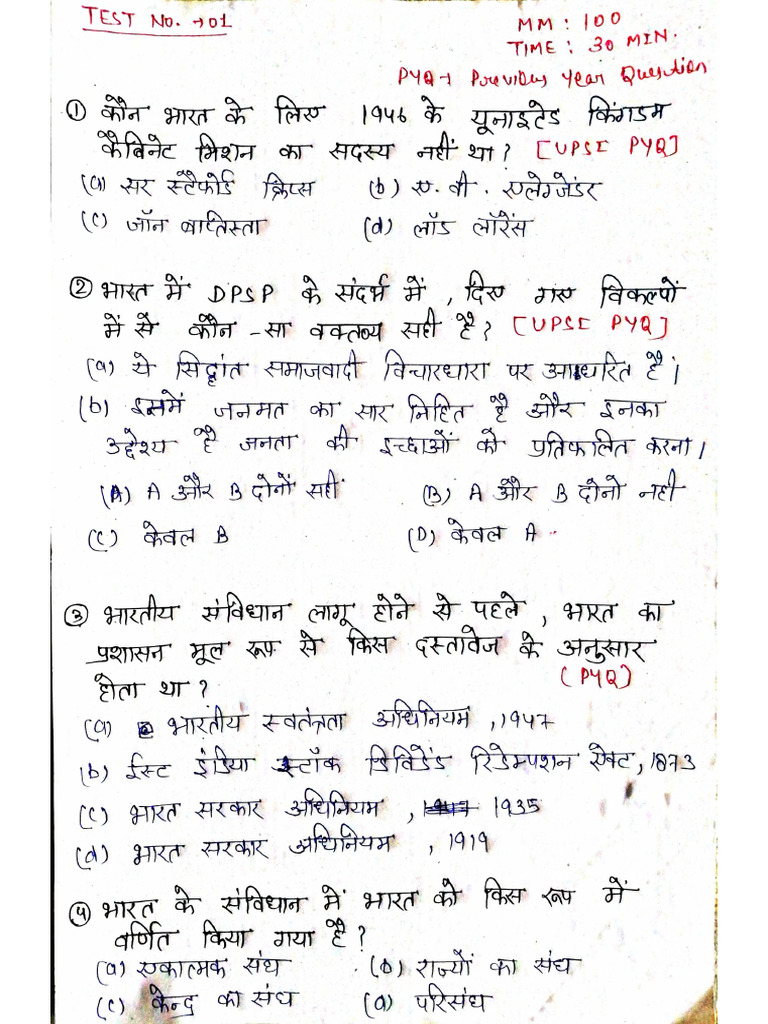 TEST No. → 01
MM : 100
TIME : 30 MIN.
PYQ → Previous Year Question
① कौन भारत के लिए 1946 के यूनाइटेड किंगडम
कैबिनेट मिशन का सदस्य नहीं था? [UPSC PYQ]
(a) सर स्टैफोर्ड क्रिप्स (b) ए. वी. एलेग्जेंडर
(c) जॉन बाप्तिस्ता (d) लॉड लॉरेंस
② भारत में DPSP के संदर्भ में, दिए गए विकल्पों
में से कौन-सा वक्तव्य सही है? [UPSC PYQ]
(a) ये सिद्धांत समाजवादी विचारधारा पर आधारित है।
(b) इसमें जनमत का सार निहित है और इनका
उद्देश्य है जनता की इच्छाओं को प्रतिफालित करना।
(A) A और B दोनों सही (B) A और B दोनो नही
(C) केवल B (D) केवल A
③ भारतीय संविधान लागू होने से पहले, भारत का
प्रशासन मूल रूप से किस दस्तावेज के अनुसार
होता था? (PYQ)
(a) भारतीय स्वतंत्रता अधिनियम, 1947
(b) ईस्ट इंडिया स्टॉक डिविडेंड रिडेम्पशन ऐक्ट, 1873
(c) भारत सरकार अधिनियम, 1935
(d) भारत सरकार अधिनियम, 1919
④ भारत के संविधान में भारत को किस रूप में
वर्णित किया गया है?
(a) एकात्मक संघ (b) राज्यों का संघ
(c) केन्द्र का संघ (d) परिसंघ